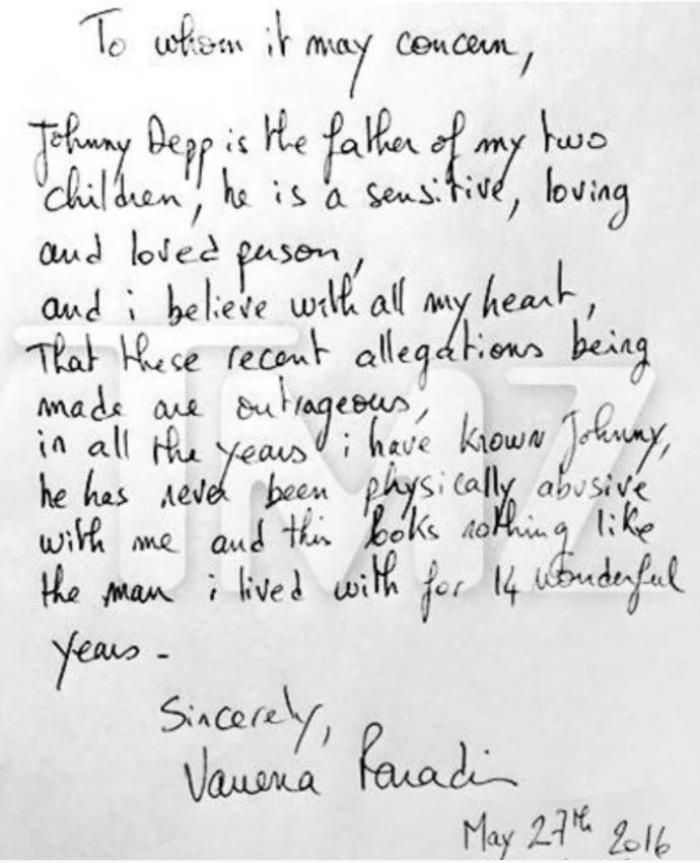 To whom it may concern,
Johnny Depp is the father of my two
children, he is a sensitive, loving
and loved person,
and i believe with all my heart,
That these recent allegations being
made are outrageous,
in all the years i have known Johnny,
he has never been physically abusive
with me and this looks nothing like
the man i lived with for 14 wonderful
years -
Sincerely,
Vanessa Paradis
May 27th 2016
TMZ